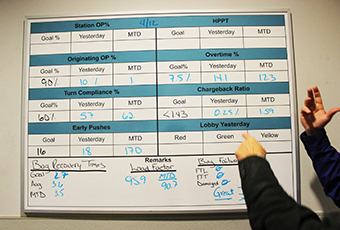 Station OP% 4/12 HPPT
Goal % Yesterday MTD Goal Yesterday MTD
Originating OP % Overtime %
Goal% Yesterday MTD Goal % Yesterday MTD
90% 10% 7.5% 14.1 12.3
Turn Compliance % Chargeback Ratio
Goal% Yesterday MTD Goal Yesterday MTD
60% 57 62 <1.43 0.25% 1.59
Early Pushes Lobby Yesterday
Goal Yesterday MTD Red Green Yellow
16 18 170
Remarks
Bag Recovery Times Load Factor Bag Failure
Goal 2.7 95.9 MTD TTL 0
Avg 3.6 90.7 ITT 0
MTD 3.5 Damaged 0
Great